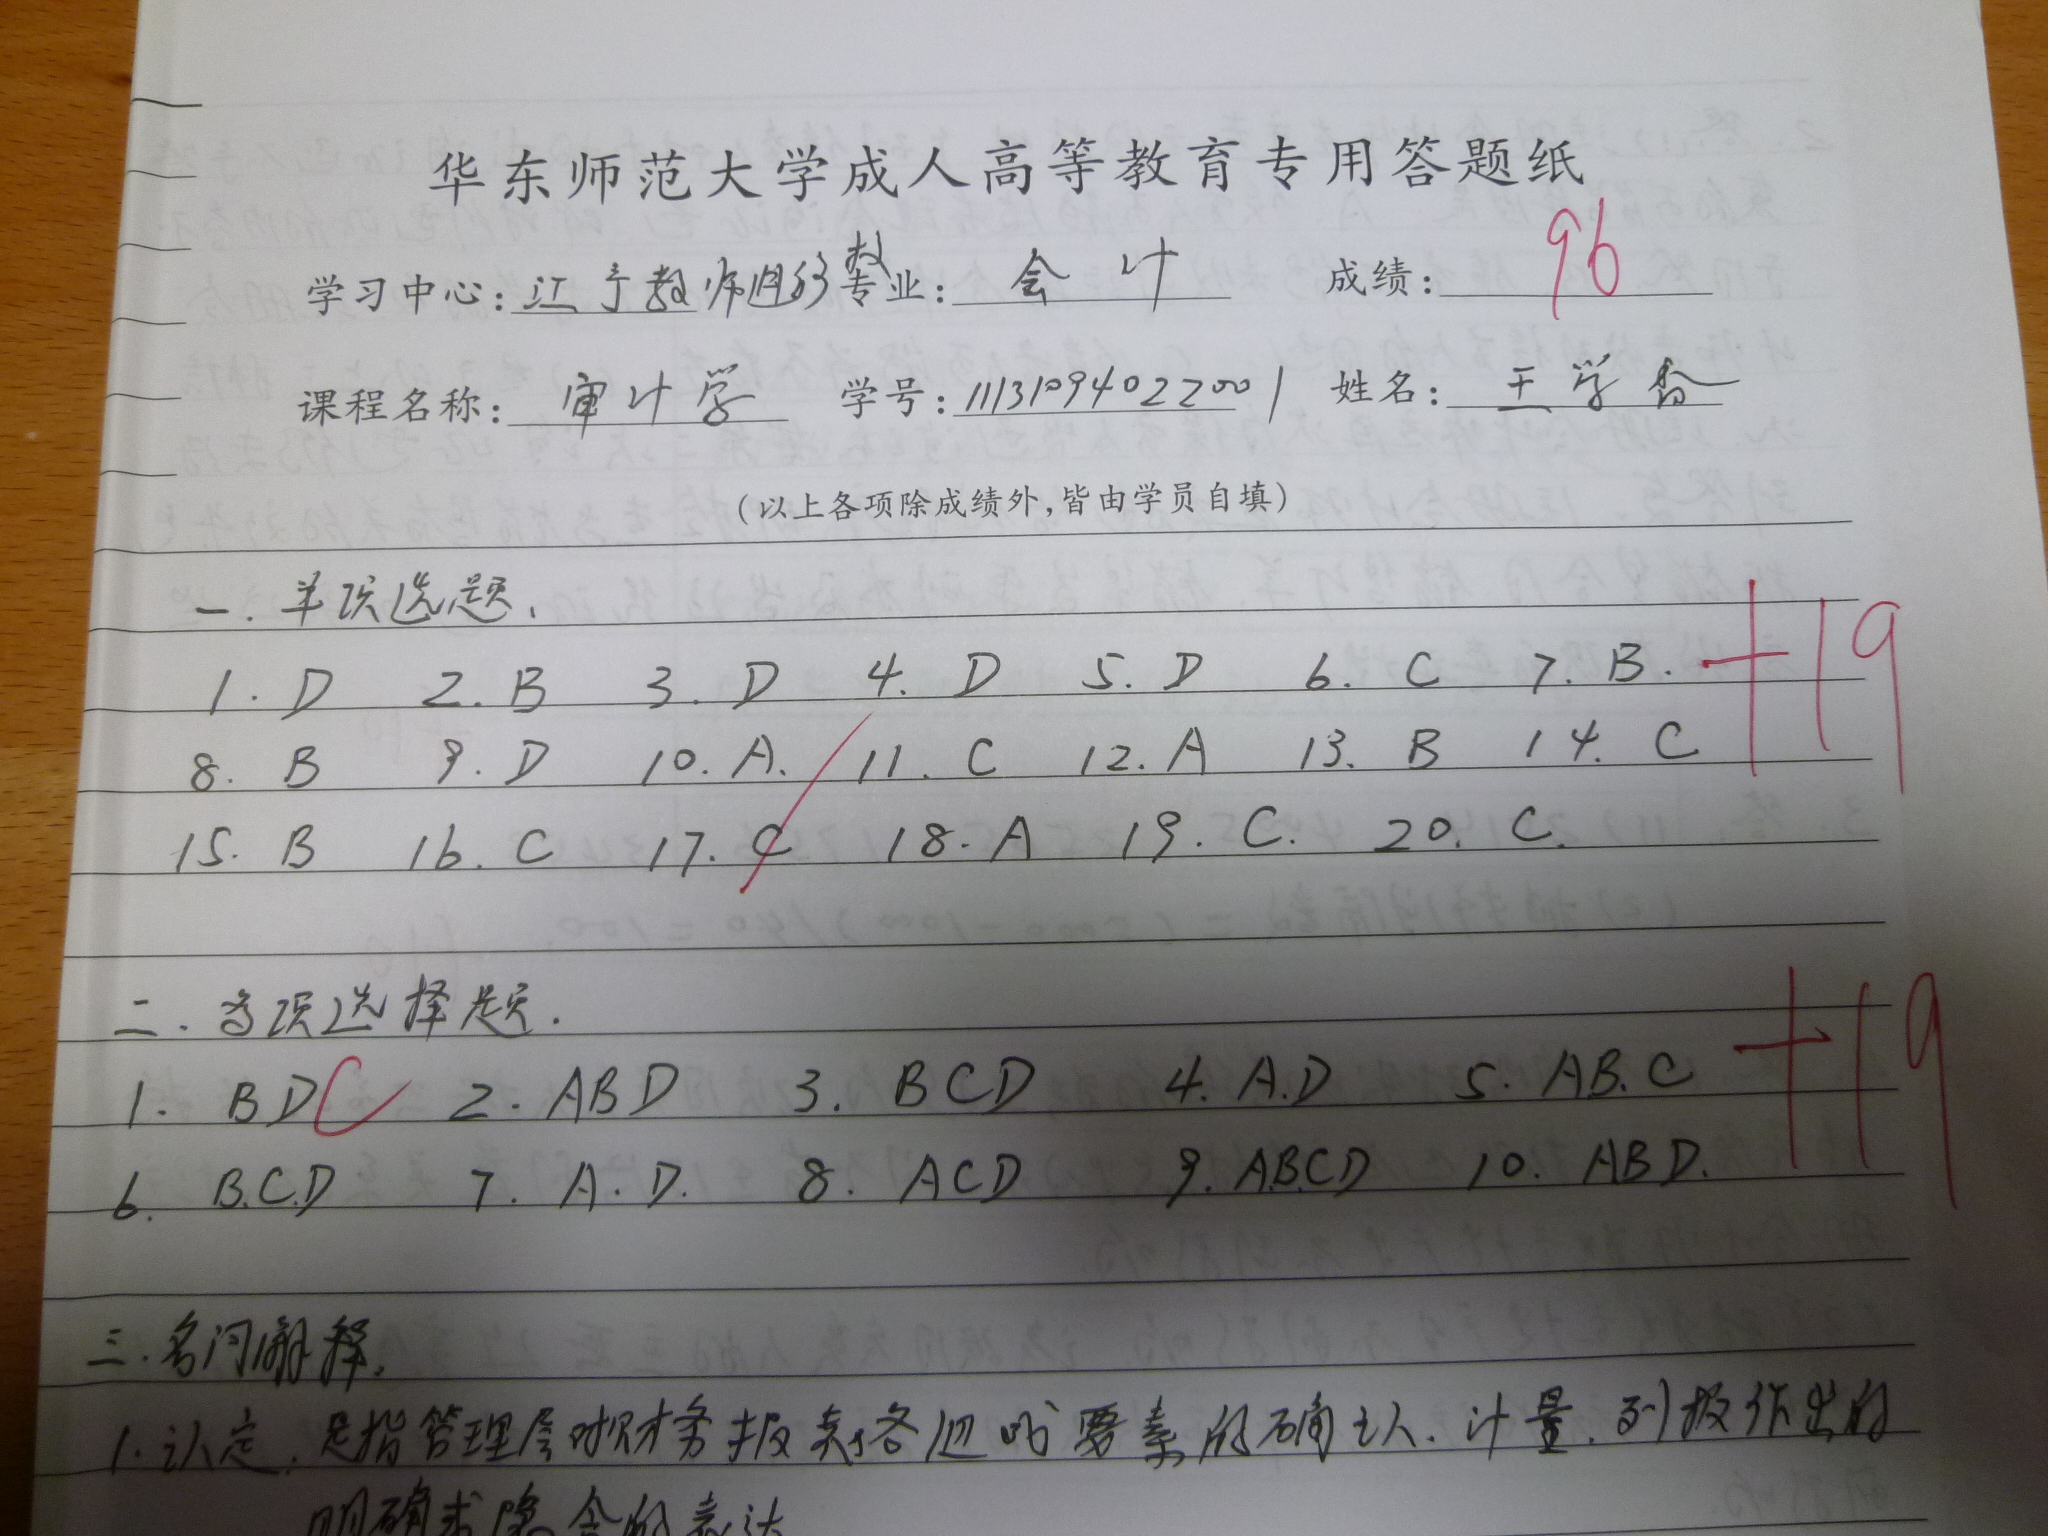 华东师范大学成人高等教育专用答题纸
学习中心: 江宁教师进修校 专业: 会计 成绩: 96
课程名称: 审计学 学号: 111310940227001 姓名: 王学香
(以上各项除成绩外,皆由学员自填)
一. 单项选题.
1. D 2. B 3. D 4. D 5. D 6. C 7. B. +19
8. B 9. D 10. A. 11. C 12. A 13. B 14. C
15. B 16. C 17. C 18. A 19. C. 20. C.
二. 多项选择题.
1. BDC 2. ABD 3. BCD 4. A.D 5. AB.C +19
6. B.C.D 7. A.D. 8. ACD 9. ABCD 10. ABD.
三. 名词解释.
1. 认定. 是指管理层对财务报表各组成要素的确认. 计量. 列报作出的
明确或隐含的表达